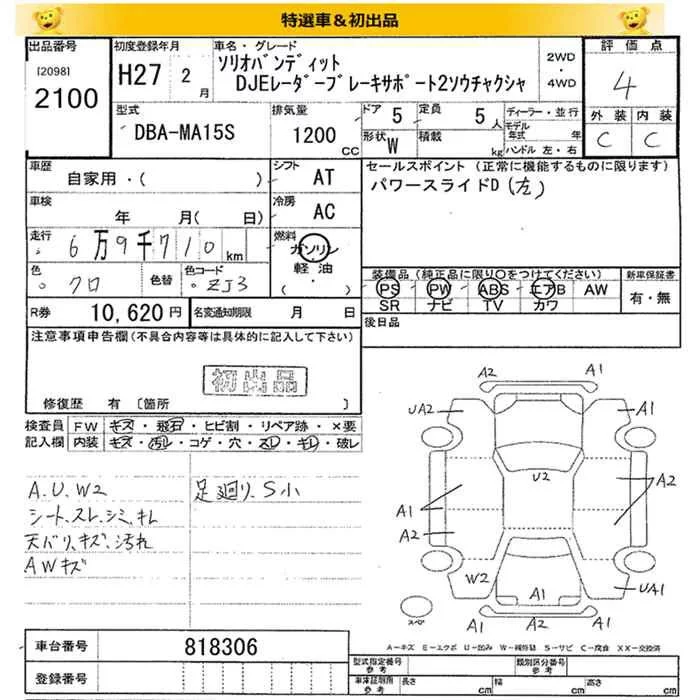 特選車&初出品
出品番号 初度登録年月 車名・グレード 2WD ・ 4WD 評価点
[2098]
2100
H27 2月
ソリオバンディット
DJEレーダーブレーキサポート2ソウチャクシャ
4
型式 排気量 ドア 5 定員 5人 ディーラー・並行 外装 内装
DBA-MA15S 1200CC 形状 W 積載 kg モデル年式 年 C C
ハンドル 左・右
車歴 シフト セールスポイント (正常に機能するものに限ります)
自家用・( ) AT パワースライドD(左)
車検 冷房
年 月( 日) AC
走行 燃料
6万9千710km ガソリン
色 色替 色コード 軽油
クロ ZJ3 (・)
装備品 (純正品に限り○をつけてください) 新車保証書
PS PW ABS エアB AW 有・無
SR ナビ TV カワ
R券 10,620円 名変通知期限 月 日
後日品
注意事項申告欄(不具合内容等は具体的に記入して下さい)
初出品
修復歴 有 〔箇所 〕
検査員 FW キズ・飛石・ヒビ割・リペア跡・×要
記入欄 内装 キズ・汚レ・コゲ・穴・スレ・キレ・破レ
A.U.W2 足廻り.S小
シート.スレ.シミ.キレ
天バリ.キズ.汚れ
AWキズ
A2 A1
UA2 A1
U2
A1 A2
A2
W2 A1 UA1
A1 A2
スペア
A-キズ E-エクボ U-凹み W-補修跡 S-サビ C-腐食 XX-交換済
車台番号 818306
登録番号
型式指定番号 参考 類別区分番号 参考
車庫証明用 参考 長さ cm 幅 cm 高さ cm